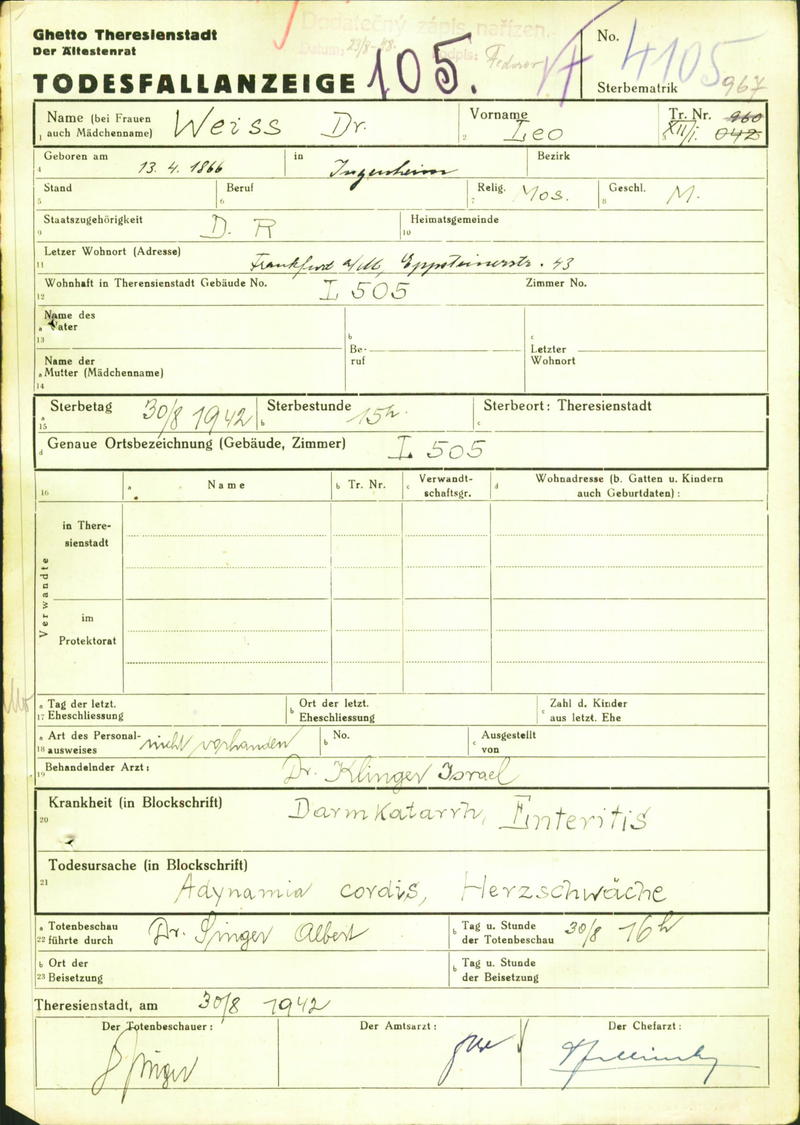 Ghetto Theresienstadt
Der Ältestenrat
Dodatečný zápis nařízen.
Datum: 23/8-48.
TODESFALLANZEIGE 105.
No. 4105
Sterbematrik 967
1 Name (bei Frauen auch Mädchenname) Weiss Dr.
2 Vorname Leo
Tr. Nr. 960
XII/1. 042
4 Geboren am 13. 4. 1866 in Ingenheim Bezirk
5 Stand 6 Beruf 7 Relig. Mos. 8 Geschl. M.
9 Staatszugehörigkeit D. R 10 Heimatsgemeinde
11 Letzer Wohnort (Adresse) Frankfurt a/M, Eppsteinerstr. 43
12 Wohnhaft in Theresienstadt Gebäude No. L 505 Zimmer No.
a 13 Name des Vater b Beruf c Letzter Wohnort
a 14 Name der Mutter (Mädchenname)
a 15 Sterbetag 30/8 1942 b Sterbestunde 15h. c Sterbeort: Theresienstadt
d Genaue Ortsbezeichnung (Gebäude, Zimmer) L 505
16 a Name b Tr. Nr. c Verwandtschaftsgr. d Wohnadresse (b. Gatten u. Kindern auch Geburtdaten):
Verwandte
in Theresienstadt
im Protektorat
a 17 Tag der letzt. Eheschliessung b Ort der letzt. Eheschliessung c Zahl d. Kinder aus letzt. Ehe
a 18 Art des Personalausweises nicht vorhanden b No. c Ausgestellt von
19 Behandelnder Arzt: Dr. Klinger Israel
20 Krankheit (in Blockschrift) Darmkatarrh, Enteritis
21 Todesursache (in Blockschrift)
Adynamia cordis, Herzschwäche
a 22 Totenbeschau führte durch Dr. Singer Albert b Tag u. Stunde der Totenbeschau 30/8 16h
b 23 Ort der Beisetzung b Tag u. Stunde der Beisetzung
Theresienstadt, am 30/8 1942
Der Totenbeschauer: Der Amtsarzt: Der Chefarzt:
Singer